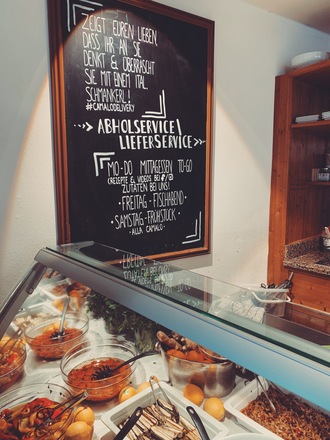 ZEIGT EUREN LIEBEN,
DASS IHR AN SIE
DENKT & ÜBERRASCHT
SIE MIT EINEM ITAL.
SCHMANKERL!
#CAMALODELIVERY
ABHOLSERVICE\
LIEFERSERVICE
MO-DO MITTAGESSEN TO-GO
(REZEPTE & VIDEOS BEI
ZUTATEN BEI UNS!
·FREITAG-FISCHABEND·
·SAMSTAG-FRÜHSTÜCK·
-ALLA CAMALO-